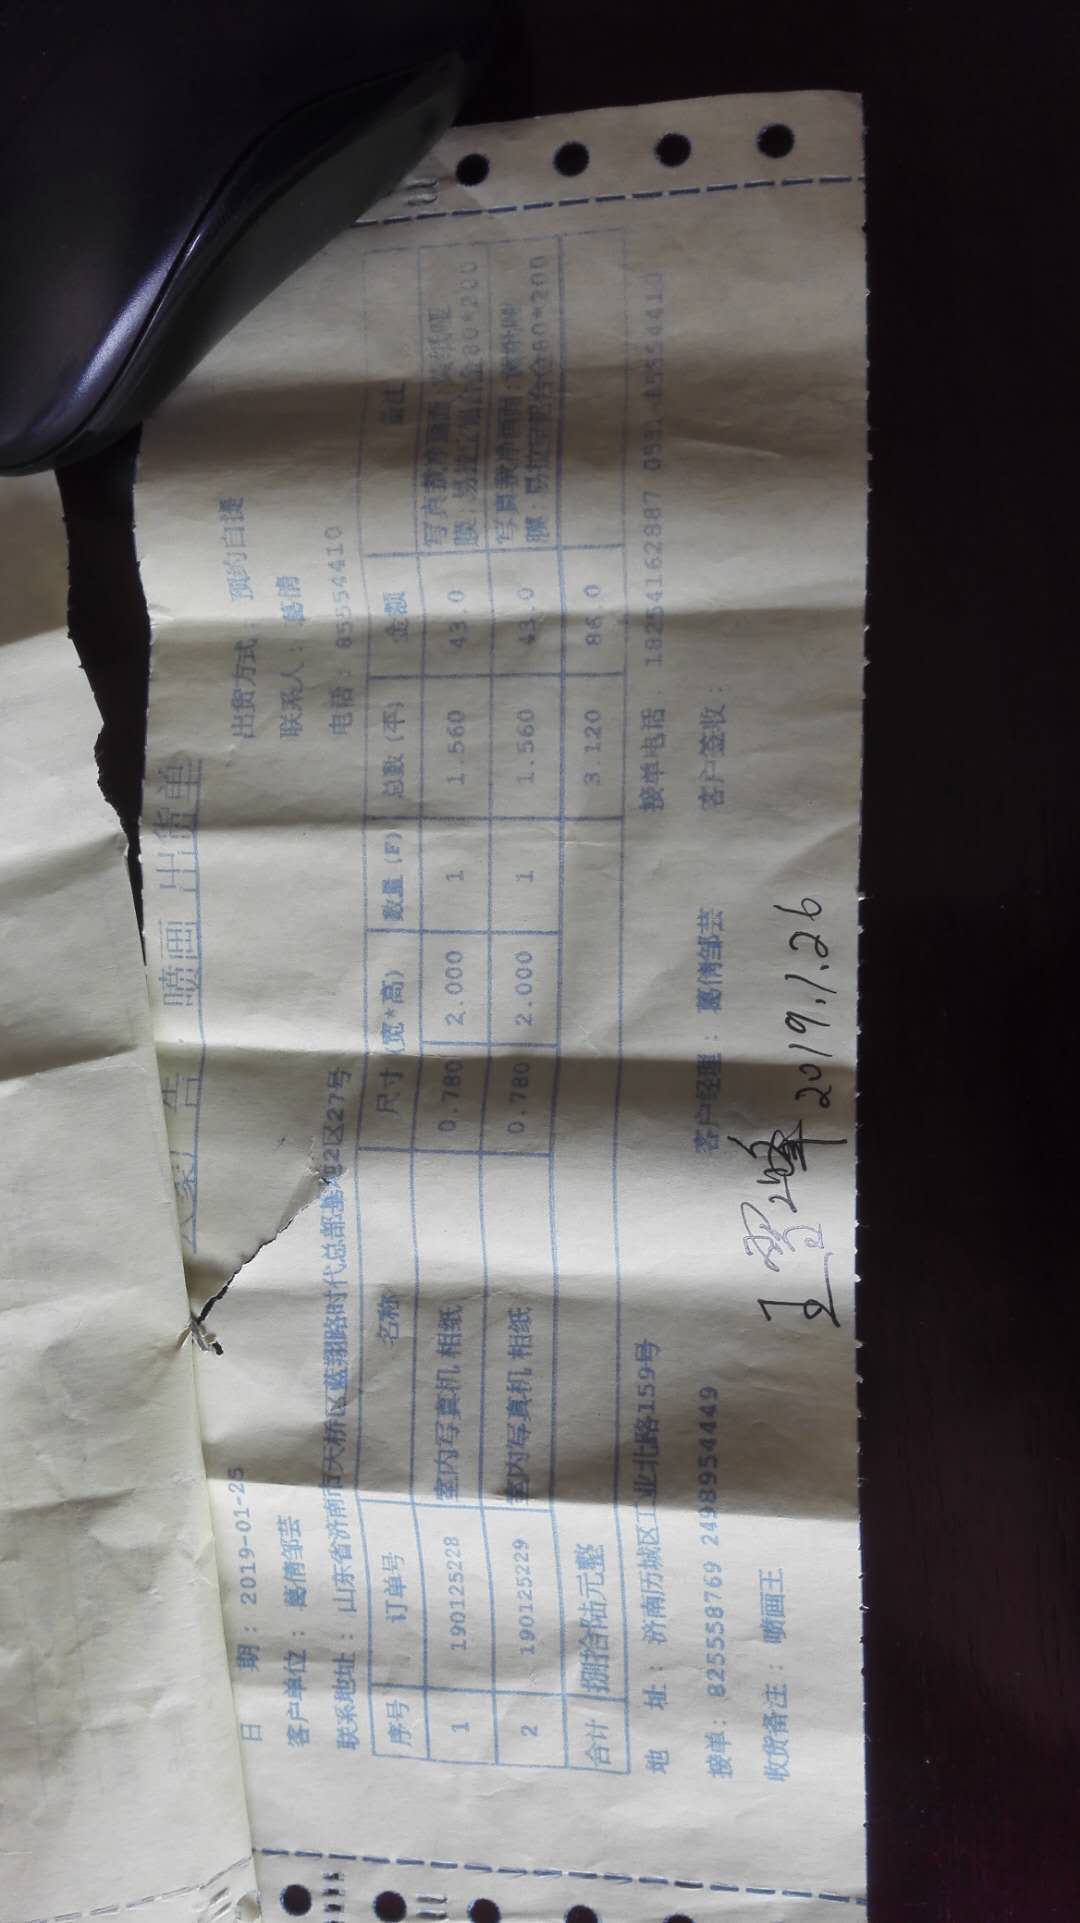 告 喷画 出货单
日 期： 2019-01-25 出货方式： 预约自提
客户单位： 葛倩邹芸 联系人： 葛倩
联系地址： 山东省济南市天桥区蓝翔路时代总部基地2区27号 电话： 85554410
序号 订单号 名称 尺寸（宽*高） 数量（F） 总数（平） 金额 备注
1 190125228 室内写真机 相纸 0.780 2.000 1 1.560 43.0 写真
膜；易拉 80*200
2 190125229 室内写真机 相纸 0.780 2.000 1 1.560 43.0 写真
膜；易拉 80*200
合计 捌拾陆元整 3.120 86.0
地 址： 济南历城区工业北路159号 接单电话： 18254162887
接单： 825558769 2498954449 客户经理： 葛倩邹芸 客户签收：
收货备注： 喷画王
2019.1.26